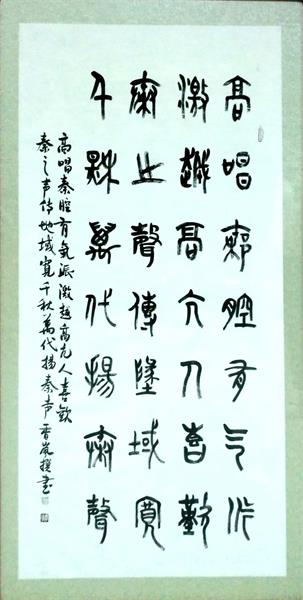 高唱秦腔有气派
激越高亢人喜歡
秦之聲傳墬域寬
千秋萬代揚秦聲
高唱秦腔有氣派激越高亢人喜歡
秦之声传地域寬千秋萬代揚秦声香嵐撰书